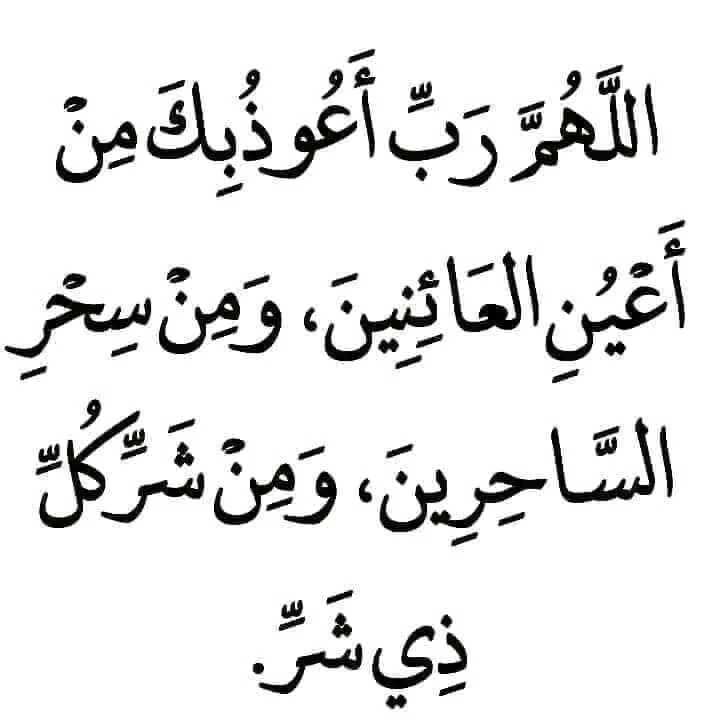 اللَّهُمَّ رَبِّ أَعُوذُبِكَ مِنْ
أَعْيُنِ العَائِنِينَ، وَمِنْ سِحْرِ
السَّاحِرِينَ، وَمِنْ شَرِّ كُلِّ
ذِي شَرِّ.